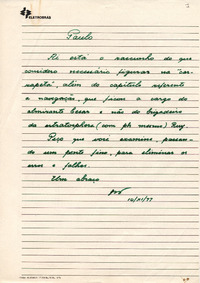 ELETROBRAS
Paulo
Aí está o rascunho do que
considero necessário figurar na
além do capítulo referente
a navegação, que ficou a cargo do
almirante Cesar e não do brigadeiro
da estratosphera (com ph mesmo) Ruy.
Peço que você examine, passan-
do um pente fino, para eliminar os
erros e falhas.
Um abraço